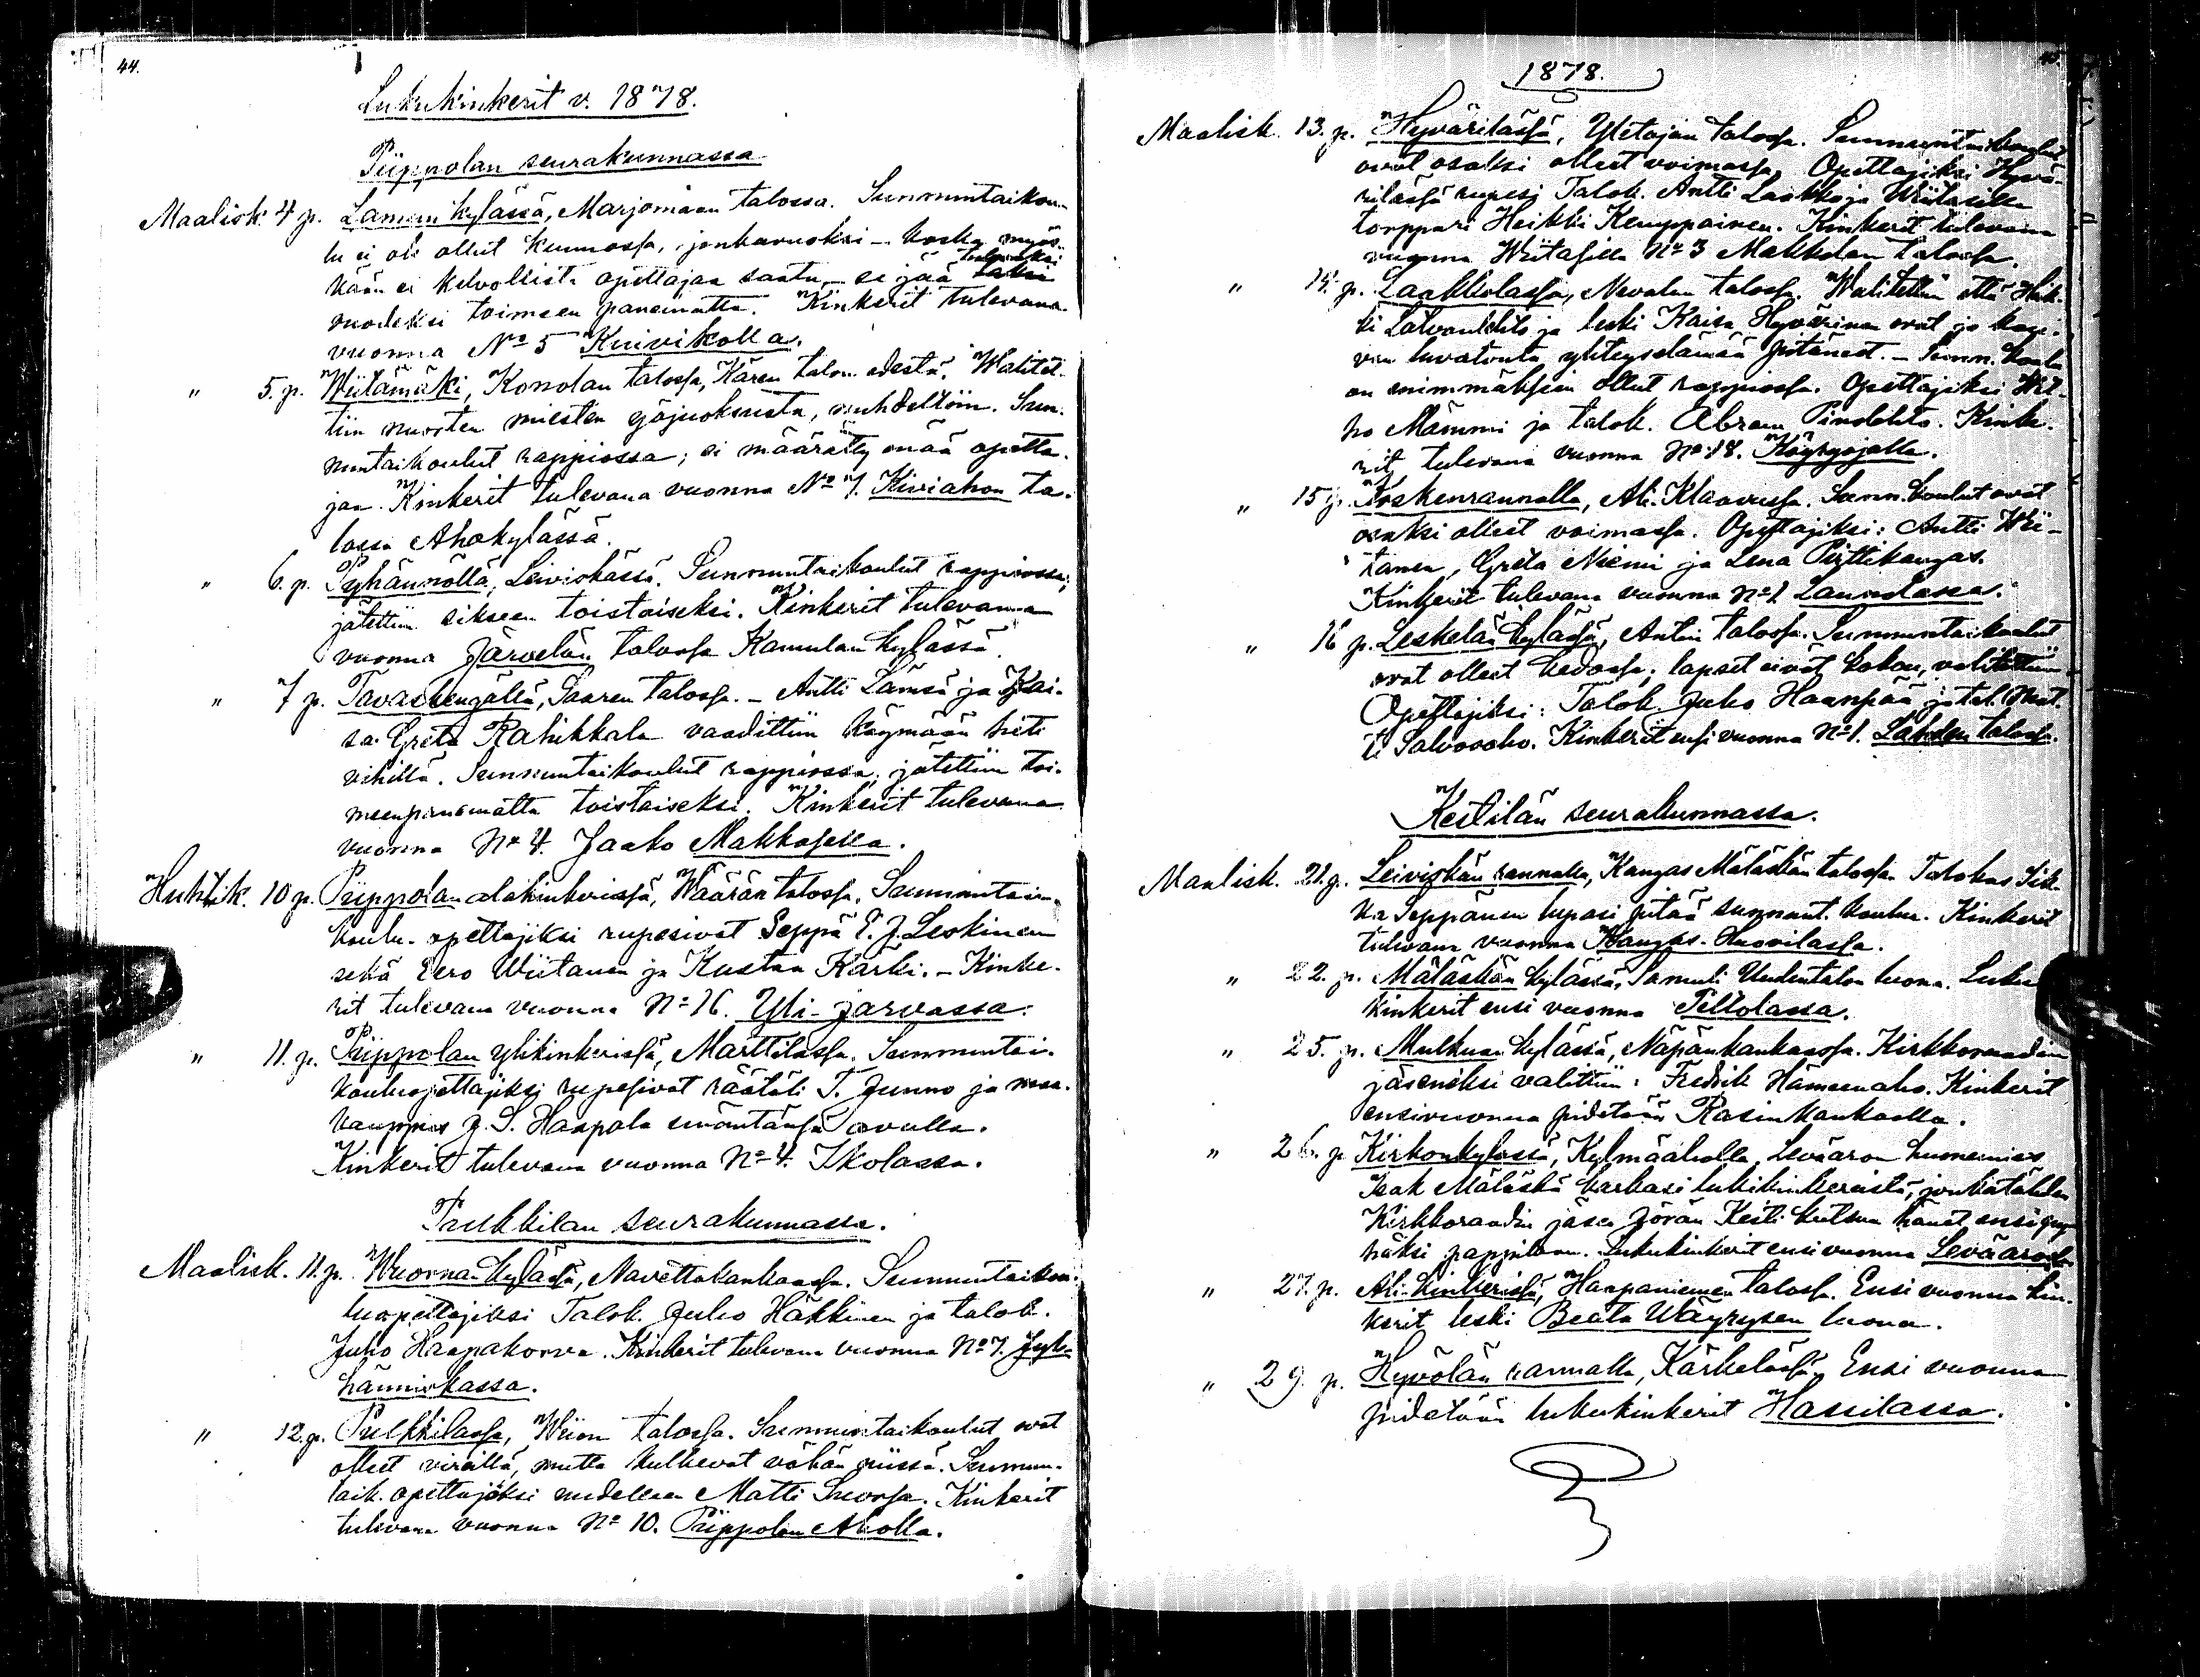 44.
Lukukinkerit v. 1878.
Piippolan seurakunnassa
Maalisk. 4 p. Lamun kylässä, Marjomaan talossa. Sunnuntaikou-
lu ei ole ollut kunnossa, jonkavuoksi – koska myös-
kään ei kelvollista opettajaa saatu – se jää tulevaksi
vuodeksi toimeen panematta. Kinkerit tulevana
vuonna No 5 Knivikolla.
" 5. p. Wiitämäki, Konolan talossa, Kären talon edestä. Walitet-
tiin nuorten miesten yöjuoksusta, nuhdeltiin. Sun-
nuntaikoulut rappiossa; ei määrätty enää opetta-
jaa. Kinkerit tulevana vuonna No 7. Kiviahon ta-
lossa Ahokylässä.
" 6. p. Pyhännällä, Leiviskässä. Sunnuntaikoulut rappiossa;
jätettiin sikseen toistaiseksi. Kinkerit tulevana
vuonna Järvelän talossa Kamulan kylässä.
" 7 p. Tavastkengällä, Saaren talossa. – Antti Lämsä ja Kai-
sa Greta Rahikkala vaadittiin käymään heti
vihillä. Sunnuntaikoulut rappiossa; jätettiin toi-
meenpanematta toistaiseksi. Kinkerit tulevana
vuonna No 4. Jaako Makkosella.
Huhtik. 10 p. Piippolan alakinkerissä, Wäärän talossa. Sunnuntai-
koulu- opettajiksi rupesivat Seppä E. J. Leskinen
sekä Eero Wiitanen ja Kustaa Kärki. – Kinke-
rit tulevana vuonna No 16. Yli-Jarvassa.
" 11. p. Piippolan ylikinkerissä, Marttilassa. Sunnuntai-
kouluopettajiksi rupesivat räätäli T. Junno ja maa-
kauppias J. S. Haapala emäntänsä avulla.
Kinkerit tulevana vuonna No 4. Ikolassa.
Pulkkilan seurakunnassa.
Maalisk. 11. p. Wuornan kylässä, Navettakankaassa. Sunnuntaikou-
luopettajiksi Talok. Juho Häkkinen ja talok.
Juho Haapakorva. Kinkerit tulevana vuonna No 7. Jyl-
hänniskassa.
" 12. p. Pulkkilassa, Wion talossa. Sunnuntaikoulut ovat
olleet vireillä, mutta kulkevat vähän niissä. Sunnun-
taik. opettajaksi uudelleen Matti Snorfa. Kinkerit
tulevana vuonna No 10. Piippolan Aholla.
1878.
Maalisk. 13. p. Hyvärilässä, Yletojan talossa. Sunnuntaikoulut
ovat osaksi olleet voimassa. Opettajiksi Hyvä-
rilässä rupesi Talok. Antti Laakko ja Wiitasilla
torppari Heikki Kemppainen. Kinkerit tulevana
vuonna Wiitasilla No 3 Makkolan talossa.
" 14. p. Laakkolassa, Nevalan talossa. Walitettiin että Heik-
ki Latvanlehto ja leski Kaisa Hyvärinen ovat jo kau-
van luvatonta yhteyselämää pitäneet. – Sunn. koulu
on enimmäksein ollut rappiossa. Opettajiksi
Mämmi ja talok. Abram Pinolehto. Kinke-
rit tulevana vuonna No 18. Käyryojalla.
" 15 p. Koskenrannalla, Ali-Klaavussa. Sunn. koulut ovat
osaksi olleet voimassa. Opettajiksi: Antti Wii-
tanen, Greta Niemi ja Lena Piittikangas.
Kinkerit tulevana vuonna No 1 Laurilassa.
" 16 p. Leskelän kylässä, Antin talossa. Sunnuntaikoulut
ovat olleet hedossa; lapset eivät kokou, valitettiin
Opettajiksi: Talok. Juho Haanpää ja tal. Mat-
ti Salvosoho. Kinkerit ensi vuonna No 1. Lahden talossa.
Kestilän seurakunnassa.
Maalisk. 21. p. Leiviskän rannalla, Kangas Mäläskän talossa. Talokas Sik-
ka Seppänen lupasi pitää sunnunt. koulun. Kinkerit
tulevana vuonna Kangas-Huovilassa.
" 22. p. Mäläskän kylässä, Samuli Uudentalon luona. Luku
kinkerit ensi vuonna Peltolassa.
" 25. p. Mulkuan kylässä, Näpänkankaassa. Kirkkoraadin
jäseneksi valittiin: Fredrik Hämeenaho. Kinkerit
ensivuonna pidetään Rasinkankaalla.
" 26. p. Kirkonkylässä, Kylmäaholla. Leväaron huonemies
Isak Mäläskä karkasi lukukinkereistä, jonkatähden
Kirkkoraadin jäsen Jöran Kesti kutsuu hänet ensi pyy-
häksi pappilaan. Lukukinkerit ensi vuonna Leväarossa.
" 27. p. Ali-kinkerissä, Haapaniemen talossa. Ensi vuonna kin-
kerit leski Beata Wäyrysen luona.
" 29. p. Hyvölän rannalla, Kärkelässä. Ensi vuonna
pidetään lukukinkerit Hassilassa.